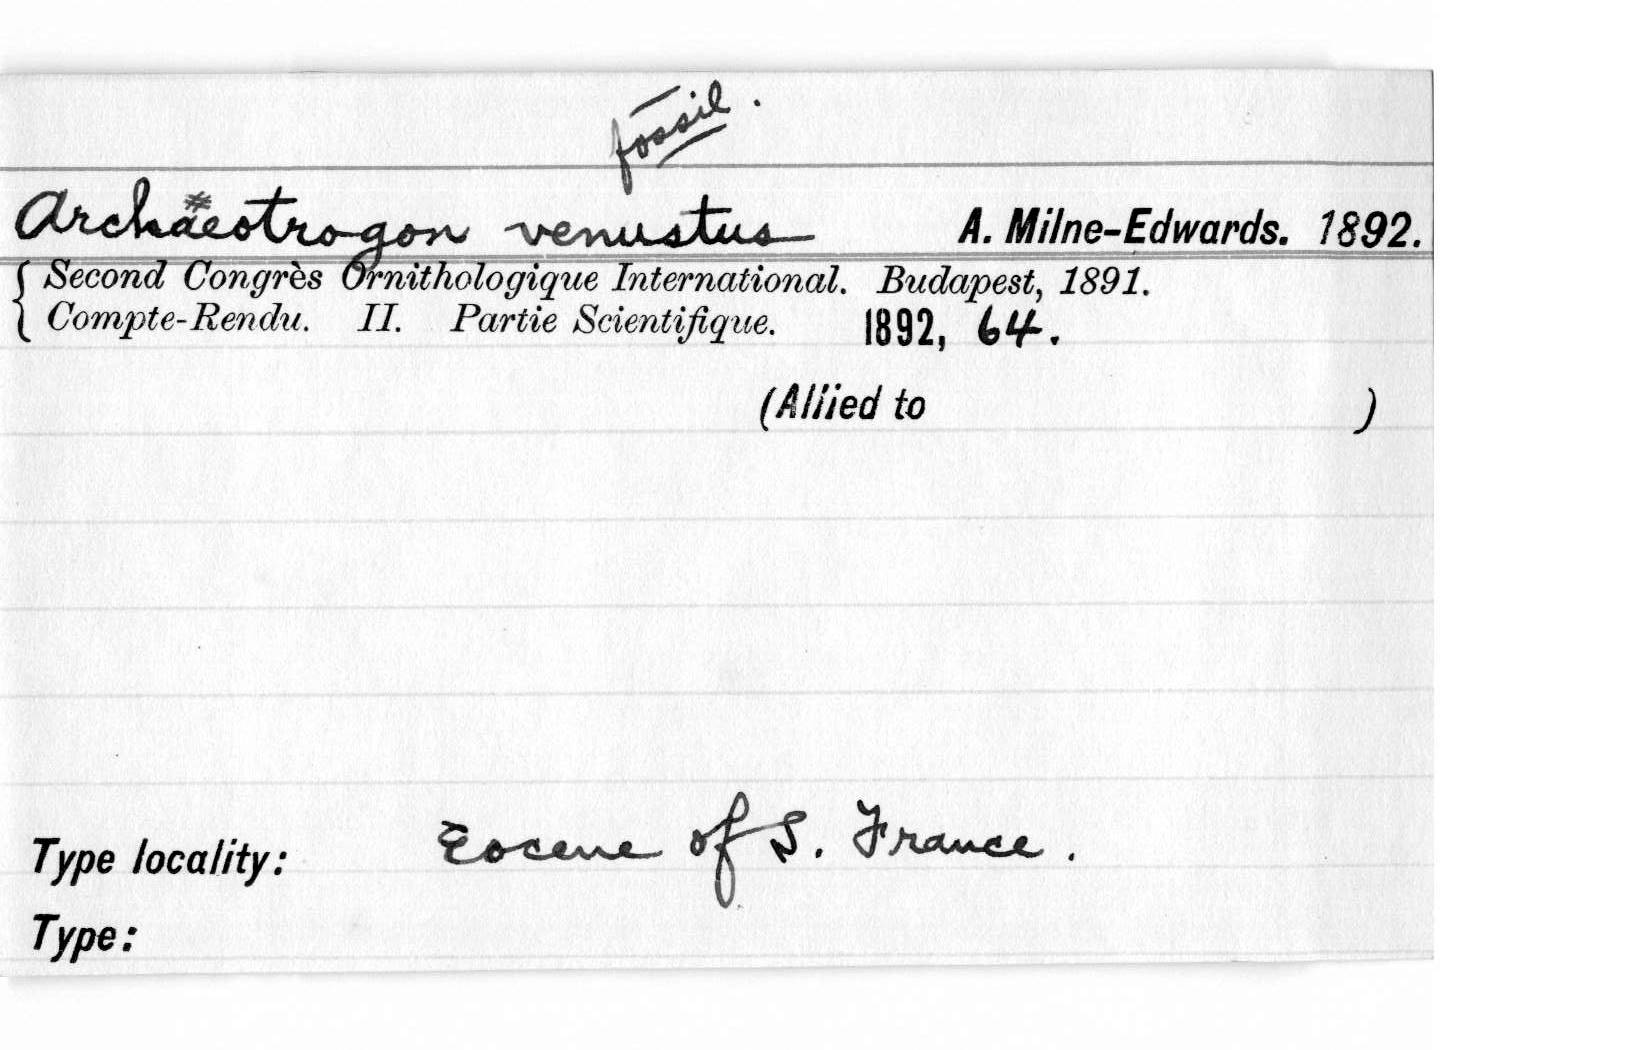 fossil.
Archaeotrogon venustus A. Milne-Edwards. 1892.
Second Congrès Ornithologique International. Budapest, 1891.
Compte-Rendu. II. Partie Scientifique. 1892, 64.
(Allied to )
Type locality: Eocene of S. France.
Type: